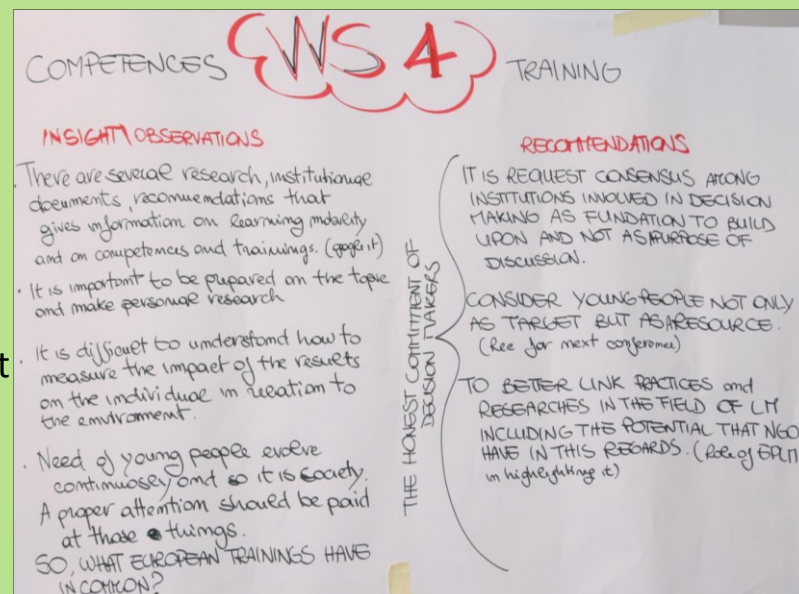 COMPETENCES
WS 4
TRAINING
INSIGHT/OBSERVATIONS
. There are several research, institutional
documents, recommendations that
gives information on learning mobility
and on competences and trainings. (google it)
· It is important to be prepared on the topic
and make personal research
t
· It is difficult to understand how to
measure the impact of the results
on the individual in relation to
the environment.
. Need of young people evolve
continuosey and so it is society.
A proper attention should be paid
at those things.
SO, WHAT EUROPEAN TRAININGS HAVE
IN COMMON?
THE HONEST COMMITMENT OF
DECISION MAKERS
RECOMMENDATIONS
IT IS REQUEST CONSENSUS AMONG
INSTITUTIONS INVOLVED IN DECISION
MAKING AS FUNDATION TO BUILD
UPON AND NOT AS A PURPOSE OF
DISCUSSION.
CONSIDER YOUNG PEOPLE NOT ONLY
AS TARGET BUT AS A RESOURCE.
(Rec for next conference)
TO BETTER LINK PRACTICES and
RESEARCHES IN THE FIELD OF LM
INCLUDING THE POTENTIAL THAT NGO
HAVE IN THIS REGARDS. (Role of EPLM
in highlighting it)